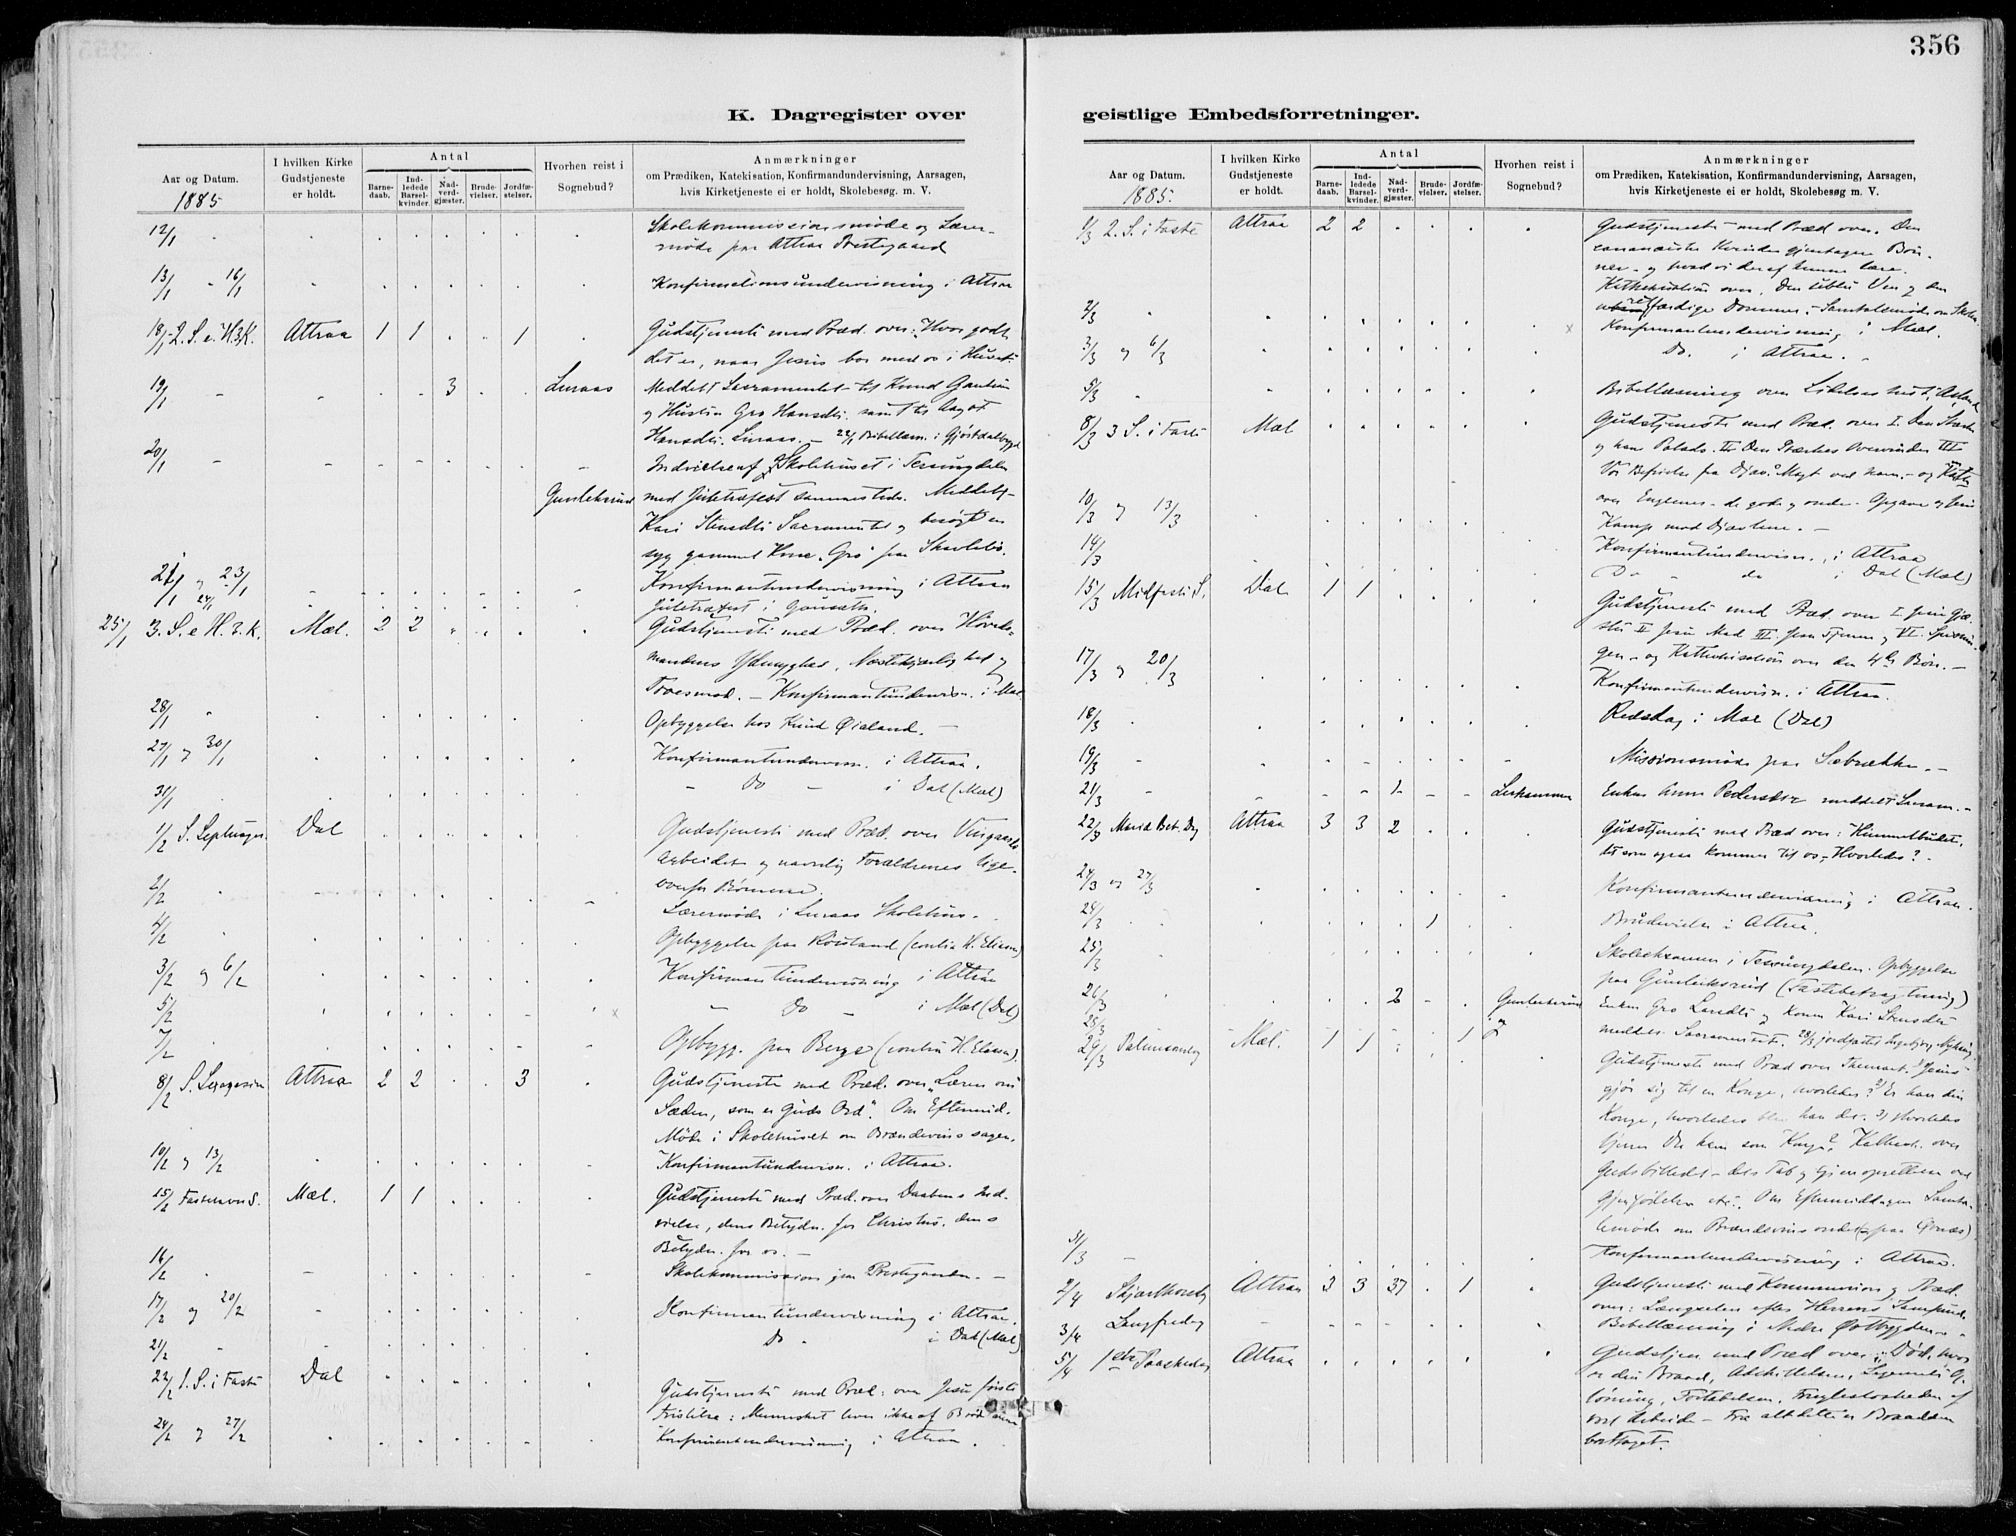 356
K. Dagregister over
Aar og Datum.
1885
I hvilken Kirke Gudstjeneste er holdt.
Antal
Barnedaab.
Indledede Barselkvinder.
Nadverdgjæster.
Brudevielser.
Jordfæstelser.
Hvorhen reist i Sognebud?
Anmærkninger
om Prædiken, Katekisation, Konfirmandundervisning, Aarsagen,
hvis Kirketjeneste ei er holdt, Skolebesøg. m. V.
12/1 Skolekommissionsmøde og Lærer-
møde paa Attraa Prestegaard
13/1 - 16/1 Konfirmationsundervisning i Attraa
18/1 2. S. e. H.3K. Attraa 1 1 1 Gudstjeneste med Præd. over: Hvor godt
det er, naar Jesus bor med os i Huset.
19/1 3 Luraas Meddelt Sacramentet til Knud
og Hustru Gro Hansdtr. samt til Aagot
Hansdtr. Luraas. - 22/1 Bibellæsn. i
20/1 Indvielse af Skolehuset i Tessungdalen
Gunleksrud med Juletræfest sammesteds. Meddelt
Kari Stensdtr Sacramentet og besøgt en
syg gammel Kone Gro paa
21/1 og 23/1 Konfirmantundervisning i Attraa
24/1 Juletræfest i
25/1 3. S. e. H. 3. K. Mæl. 2 2 Gudstjeneste med Præd. over Høveds-
mandens Ydmyghed, Næstekjærlighed og
Troesmod. - Konfirmantundervisn. i Mæl
28/1 Opbyggelse hos Knud Øialand.
27/1 og 30/1 Konfirmantundervisn. i Attraa.
31/1 - Do - i Dal (Mæl)
1/2 S. Septuages. Dal Gudstjeneste med Præd. over Vingaards
Arbeidet og navnlig Forældrenes lige-
overfor Børnene.
2/2 Lærermøde i Luraas Skolehus.
4/2 Opbyggelse paa (contra H. Eliasen)
3/2 og 6/2 Konfirmantundervisning i Attraa
5/2 - Do - i Mæl (Dal)
7/2 Opbygg. paa Berge (contra H. Eliasen).
8/2 S. Sexagesima Attraa 2 2 3 Gudstjeneste med Præd. over "Læren om
Sæden, som er Guds Ord". Om Eftermid.
Møde i Skolehuset om Brændevinssagen.
10/2 og 13/2 Konfirmantundervisn. i Attraa.
15/2 Fastelavns S. Mæl. 1 1 Gudstjeneste med Præd. over Daabens Ind-
vielse, dens Betydn. for Christus, dens
Betydn. for os. -
16/2 Skolekommission paa Prestegaarden. -
17/2 og 20/2 Konfirmantundervisning i Attraa.
21/2 Do i Dal (Mæl)
22/2 1. S. i Faste Dal Gudstjeneste med Præd. over Jesu første
Fristelse: Mennesket lever ikke af Brød alene
24/2 og 27/2 Konfirmantundervisning i Attraa.
geistlige Embedsforretninger.
Aar og Datum.
1885.
I hvilken Kirke Gudstjeneste er holdt.
Antal
Barnedaab.
Indledede Barselkvinder.
Nadverdgjæster.
Brudevielser.
Jordfæstelser.
Hvorhen reist i Sognebud?
Anmærkninger
om Prædiken, Katekisation, Konfirmandundervisning, Aarsagen,
hvis Kirketjeneste ei er holdt, Skolebesøg m. V.
1/3 2. S. i Faste Attraa 2 2 Gudstjeneste med Præd. over. Den
cananæiske Kvindes gjentagne Bøn-
ner - og hvad vi deraf kunne lære.
Kathekisation over Den Ven og den
uretfærdige Dommer. - Samtalemøde om Skolen.
2/3 Konfirmantundervisning i Mæl.
3/3 og 6/3 Do. i Attraa. -
5/3 Bibellæsning over
8/3 3 S. i Faste Mæl Gudstjeneste med Præd. over I. Den Stærke
og hans Palads. II Den Stærkes Overvinder III
Vor Befrielse fra Djæv. Magt ved ham. - og Kat.
over Englene - de gode og onde - Opgave og
Kamp mod Djævlene. -
10/3 og 13/3 Konfirmantundervisn. i Attraa
14/3 Do - do i Dal (Mæl)
15/3 Midfaste S. Dal 1 1 Gudstjeneste med Præd. over I Jesu Gjæ-
ster II Jesu Mad III. Jesu Tjenere og VI. Spisnin-
gen - og Kathekisation over den 4de Bøn. -
17/3 og 20/3 Konfirmantundervisn. i Attraa.
18/3 Rodedag i Mæl (Dal)
19/3 Missionsmøde paa Sæbrekke. -
21/3 1 Enken Anne Pedersdtr meddelt Sacram. -
22/3 Mariæ Bet. Dag Attraa 3 3 2 Gudstjeneste med Præd over: Himmelbudet,
det som ogsaa kommer til os - Hvorledes? -
24/3 og 27/3 Konfirmantundervisning i Attraa.
24/3 1 Brudevielse i Attraa.
25/3 Skoleexamen i Tessungdalen. Opbyggelse
paa Gunleiksrud (Fastebetragtning)
26/3 2 Gunleiksrud Enken Gro og Konen Kari Stensdtr
meddelt Sacramentet. 28/3 jordfæstet
28/3
29/3 Palmesøndag Mæl. 1 1 1 Gudstjeneste med Præd over Themaet: 1) Jesus
gjør sig til en Konge, hvorledes? 2) Er han din
Konge, hvorledes blev han det. 3) Hvorledes
tjener Du ham som Konge? Kathest. over
Gudsbilledet - dets Tab og Gjenoprettelse ved
Gjenfødelsen etc. Om Eftermiddagen Samta-
lemøde om Brændevinsondet (paa Øvnæs)
31/3 Konfirmantundervisning i Attraa.
2/4 Skjærthorsdag Attraa 3 3 37 1 Gudstjeneste med Kommunion og Præd.
over: Længselen efter Herrens Samfund.
3/4 Langfredag Bibellæsning i Østbygden. -
5/4 1ste Paaskedag Attraa Gudstjen. med Præd over: "Død, hvor
er din Braad, Adskillelsen, Legemets Op-
løsning, Fortabelsen, Frugtesløsheden af
vort Arbeide - Fra alt dette er Braadden
borttaget.